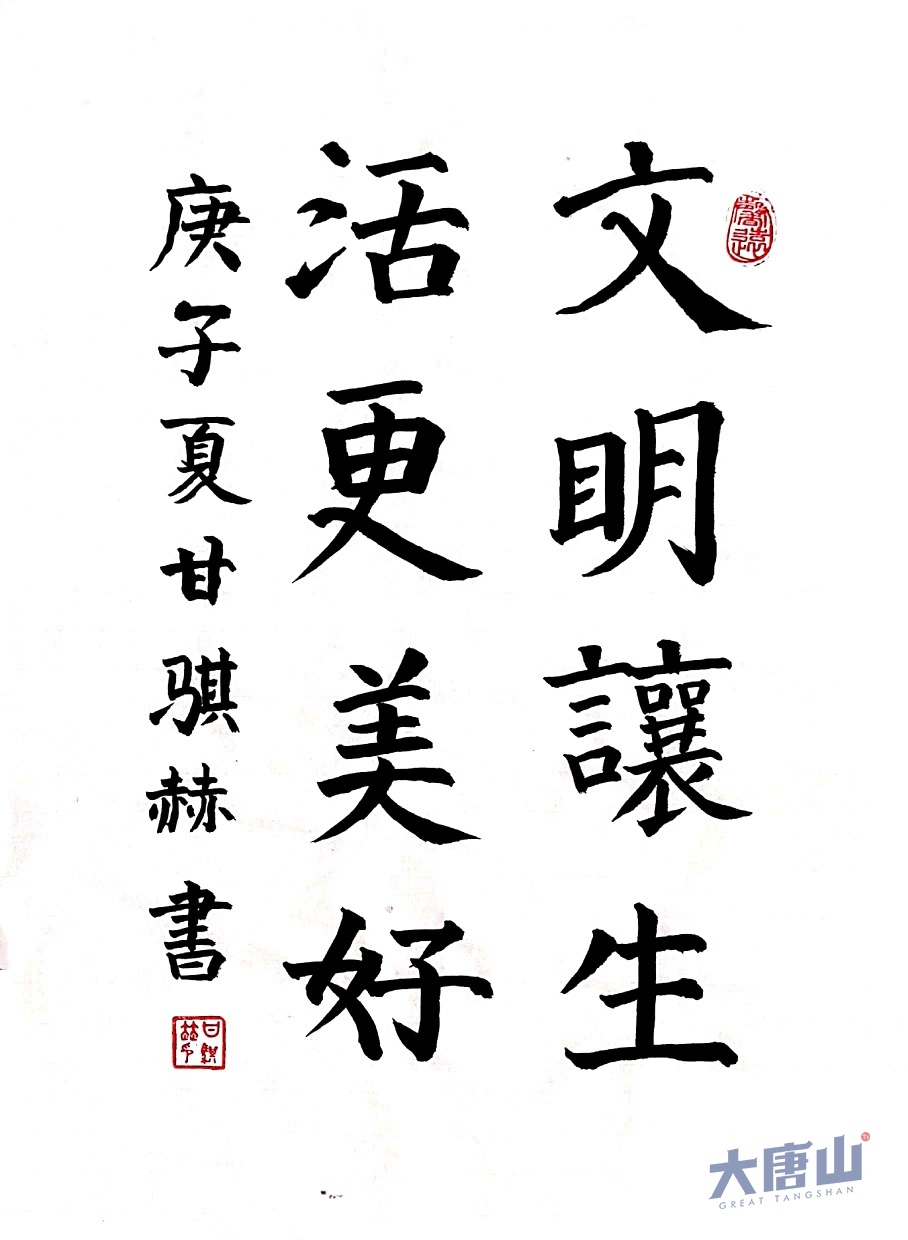 文明讓生
活更美好
庚子夏甘骐赫書
甘骐赫印
大唐山
GREAT TANGSHAN